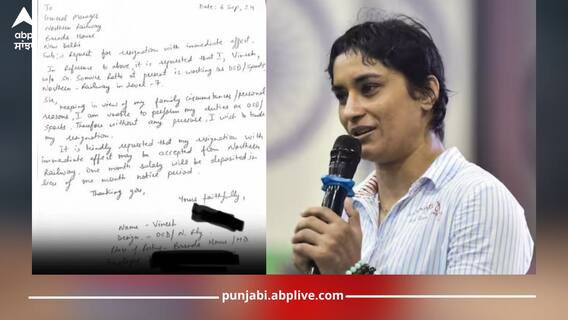 abp
ਸਾਂਝਾ
To
Date: 6 Sep, 24
General Manager
Northern Railway
Baroda House
New Delhi
Sub:- Request for resignation with immediate effect.
In Reference to above, it is requested that I, Vinesh,
w/o Sh. Somvir Rathi at present is working as OSD/Sports,
Northern - Railway in Level - 7.
Sir, keeping in view of my family circumstances/personal
reasons, I am unable to perform my duties as OSD/
Sports. Therefore without any pressure, I wish to
my resignation.
It is kindly requested that my resignation with
immediate effect may be accepted from Northern
Railway. One month salary will be deposited in
lieu of one month notice period.
Thanking you,
Yours faithfully,
Name - Vinesh
Design. - OSD/N. Rly.
Place of Posting - Baroda House/
punjabi.abplive.com